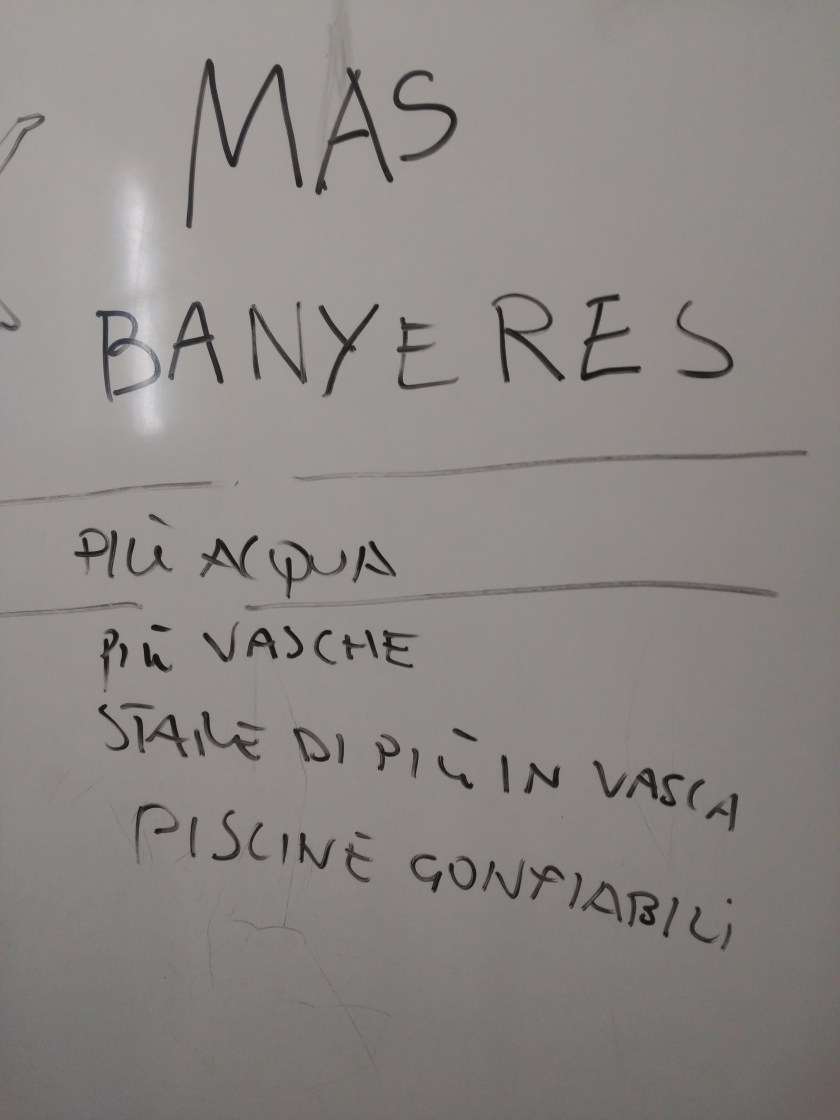 MAS
BANYERES
PIÙ ACQUA
PIÙ VASCHE
STARE DI PIÙ IN VASCA
PISCINE GONFIABILI